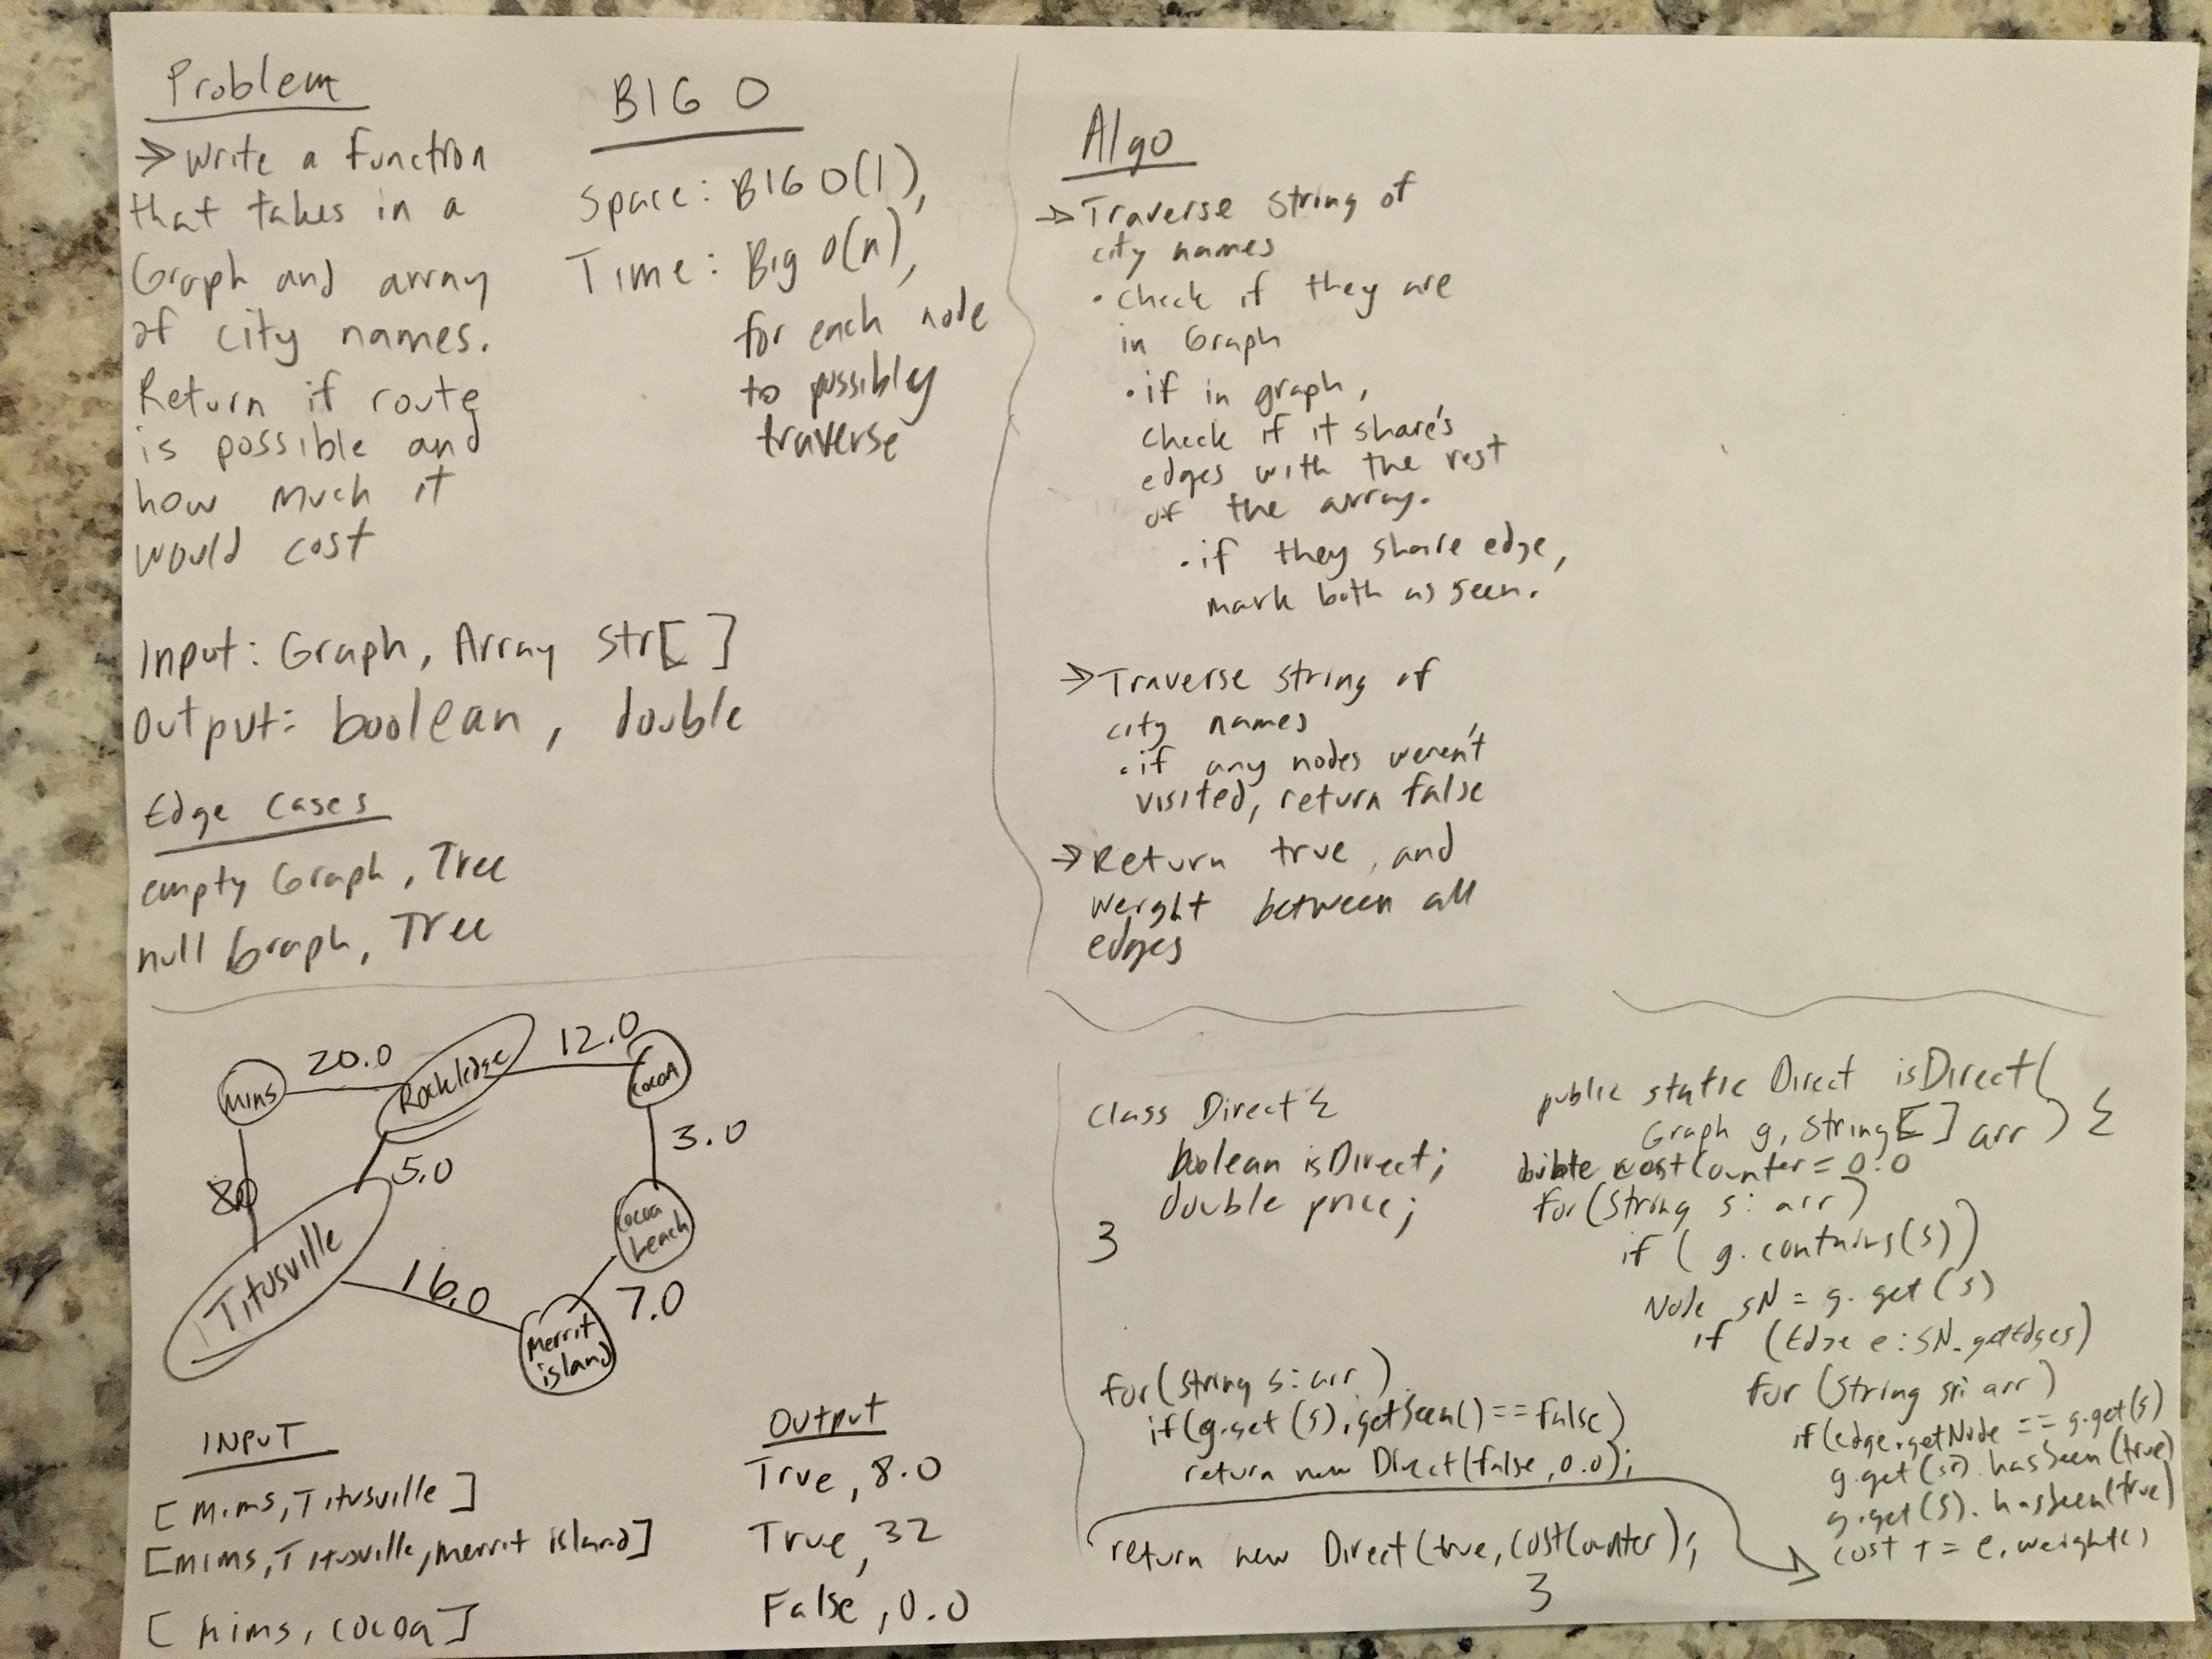 Problem
→ Write a function
that takes in a
Graph and array
of city names.
Return if route
is possible and
how much it
would cost
Input: Graph, Array Str[ ]
Output: boolean, double
Edge Cases
empty Graph, Tree
null Graph, Tree
BIG O
Space: BIG O(1),
Time: Big O(n),
for each node
to possibly
traverse
Algo
→ Traverse string of
city names
• check if they are
in Graph
• if in graph,
check if it share's
edges with the rest
of the array.
• if they share edge,
mark both as seen.
→ Traverse string of
city names
• if any nodes weren't
visited, return false
→ Return true, and
weight between all
edges
20.0
12.0
Mims
Rockledge
Cocoa
3.0
5.0
Titusville
Cocoa
beach
16.0
7.0
Merrit
island
INPUT
[Mims, Titusville]
[Mims, Titusville, Merrit island]
[Mims, Cocoa]
Output
True, 8.0
True, 32
False, 0.0
Class Direct {
boolean isDirect;
double price;
}
public static Direct isDirect(
Graph g, String[ ] arr) {
double costCounter = 0.0
for(String s: arr)
if (g.contains(s))
Node sN = g.get(s)
if (Edge e: sN.getEdges)
for (String sr: arr)
if(edge.getNode == g.get(s)
g.get(sr).hasSeen(true)
g.get(s).hasSeen(true)
cost += e.weight()
for(String s: arr)
if(g.get(s).getSeen() == false)
return new Direct(false, 0.0);
return new Direct(true, costCounter);
}